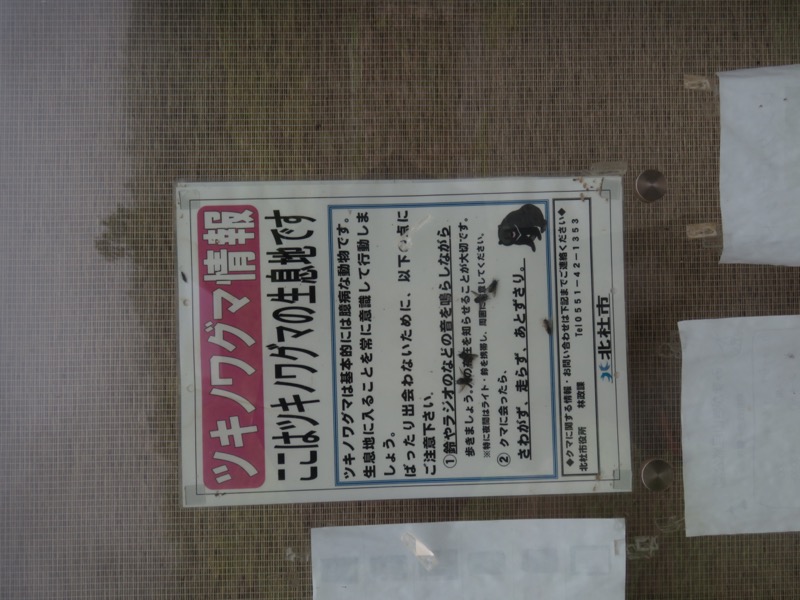 ツキノワグマ情報
ここはツキノワグマの生息地です
ツキノワグマは基本的には臆病な動物です。
生息地に入ることを常に意識して行動しま
しょう。
ばったり出会わないために、以下の点に
ご注意下さい。
①鈴やラジオのなどの音を鳴らしながら
歩きましょう。人の存在を知らせることが大切です。
※特に夜間はライト・鈴を携帯し、周囲に注意してください。
②クマに会ったら、
さわがず、走らず、あとずさり。
◆クマに関する情報・お問い合わせは下記までご連絡ください◆
北杜市役所 林政課 Tel0551-42-1353
北杜市